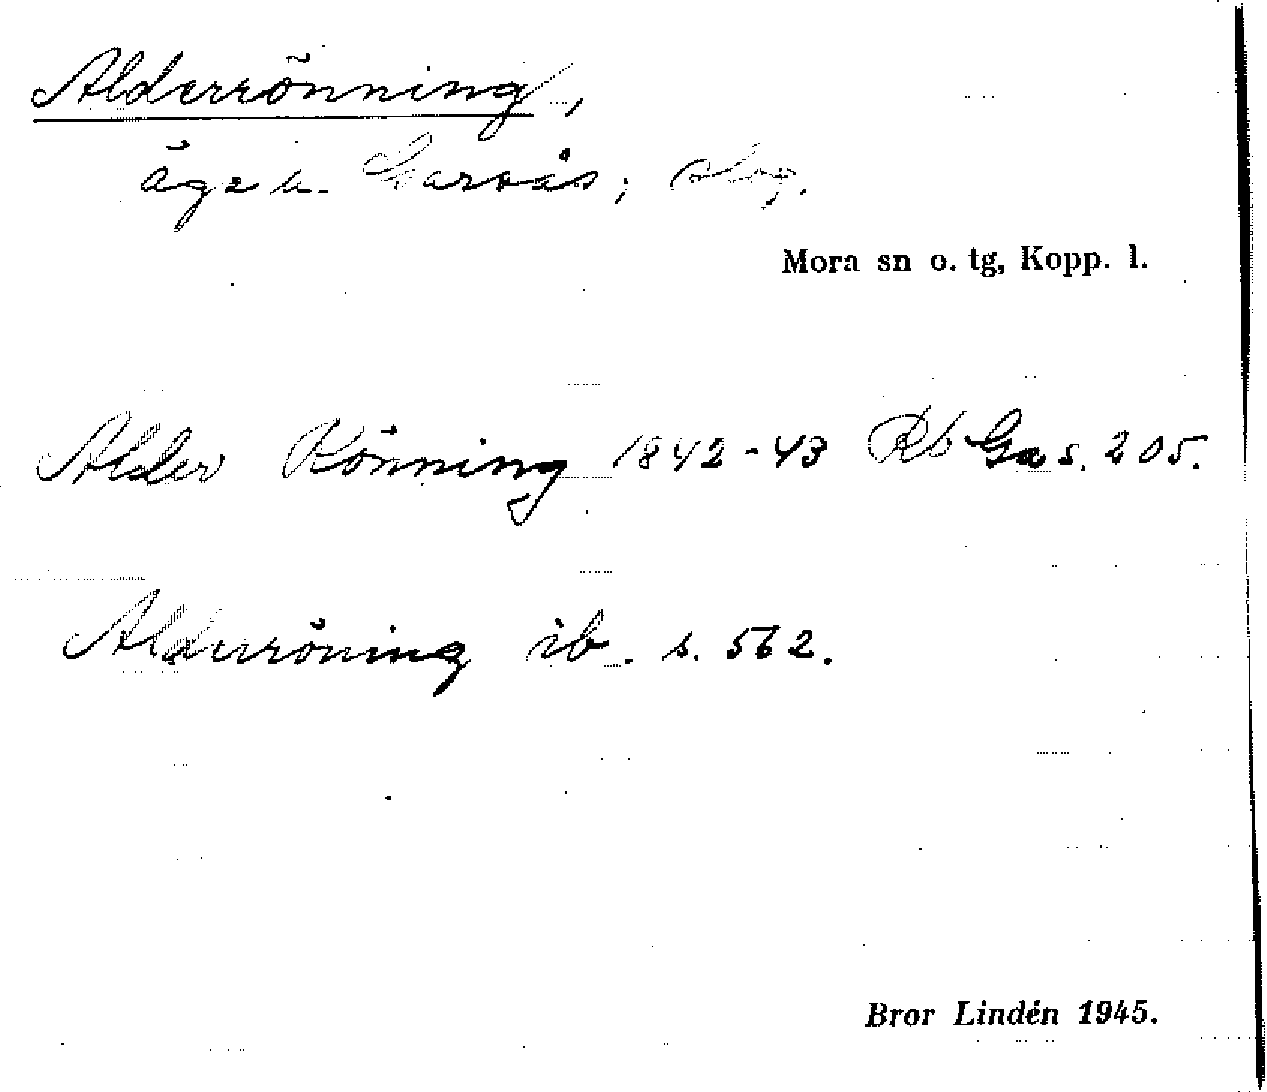 Alderrönning,
ägor u. Garsås; skog.
Mora sn o. tg, Kopp. l.
Alder Rönning 1842-43 Rb Ga s. 205.
Alderröning ib. s. 562.
Bror Lindén 1945.